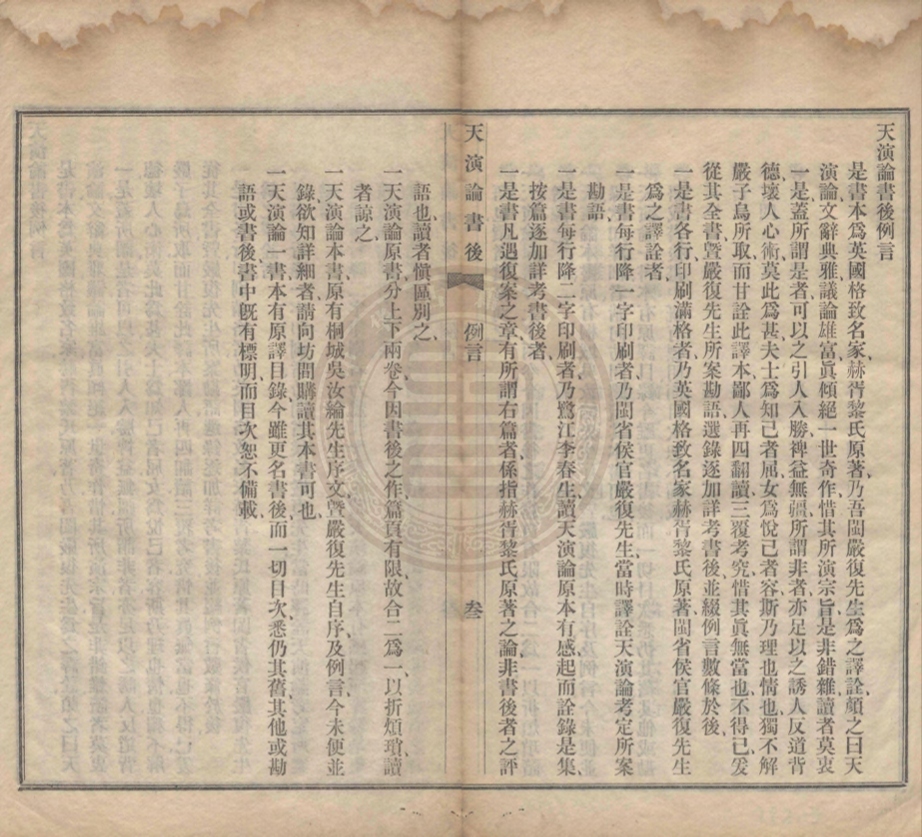 天演論書後例言
是書本爲英國格致名家、赫胥黎氏原著、乃吾閩嚴復先生爲之譯詮、顏之曰天
演論、文辭典雅、議論雄富、眞傾絕一世奇作、惜其所演宗旨、是非錯雜、讀者莫衷
一是、蓋所謂是者、可以之引人入勝、裨益無疆、所謂非者、亦足以之誘人反道背
德、壞人心術、莫此爲甚、夫士爲知己者屈、女爲悅己者容、斯乃理也、情也、獨不解
嚴子烏所取、而甘詮此譯本、鄙人再四翻讀、三覆考究、惜其眞無當也、不得已、爰
從其全書、曁嚴復先生所案勘語、選錄逐加詳考書後、並綴例言數條於後、
一是書各行、印刷滿格者、乃英國格致名家赫胥黎氏原著、閩省侯官嚴復先生
爲之譯詮者、
一是書每行降一字印刷者、乃閩省侯官嚴復先生、當時譯詮天演論、考定所案
勘語、
一是書每行降二字印刷者、乃鷺江李春生、讀天演論原本、有感起而詮錄是集、
按篇逐加詳考書後者、
一是書凡遇復案之章、有所謂右篇者、係指赫胥黎氏原著之論、非書後者之評
天演論書後
例言
叁
語也、讀者愼區別之、
一天演論原書、分上下兩卷、今因書後之作、篇頁有限、故合二爲一、以折煩瑣、讀
者諒之、
一天演論本書、原有桐城吳汝綸先生序文、曁嚴復先生自序、及例言、今未便並
錄、欲知詳細者、請向坊間購讀其本書可也、
一天演論一書、本有原譯目錄、今雖更名書後、而一切目次、悉仍其舊、其他或勘
語、或書後、書中旣有標明、而目次恕不備載、